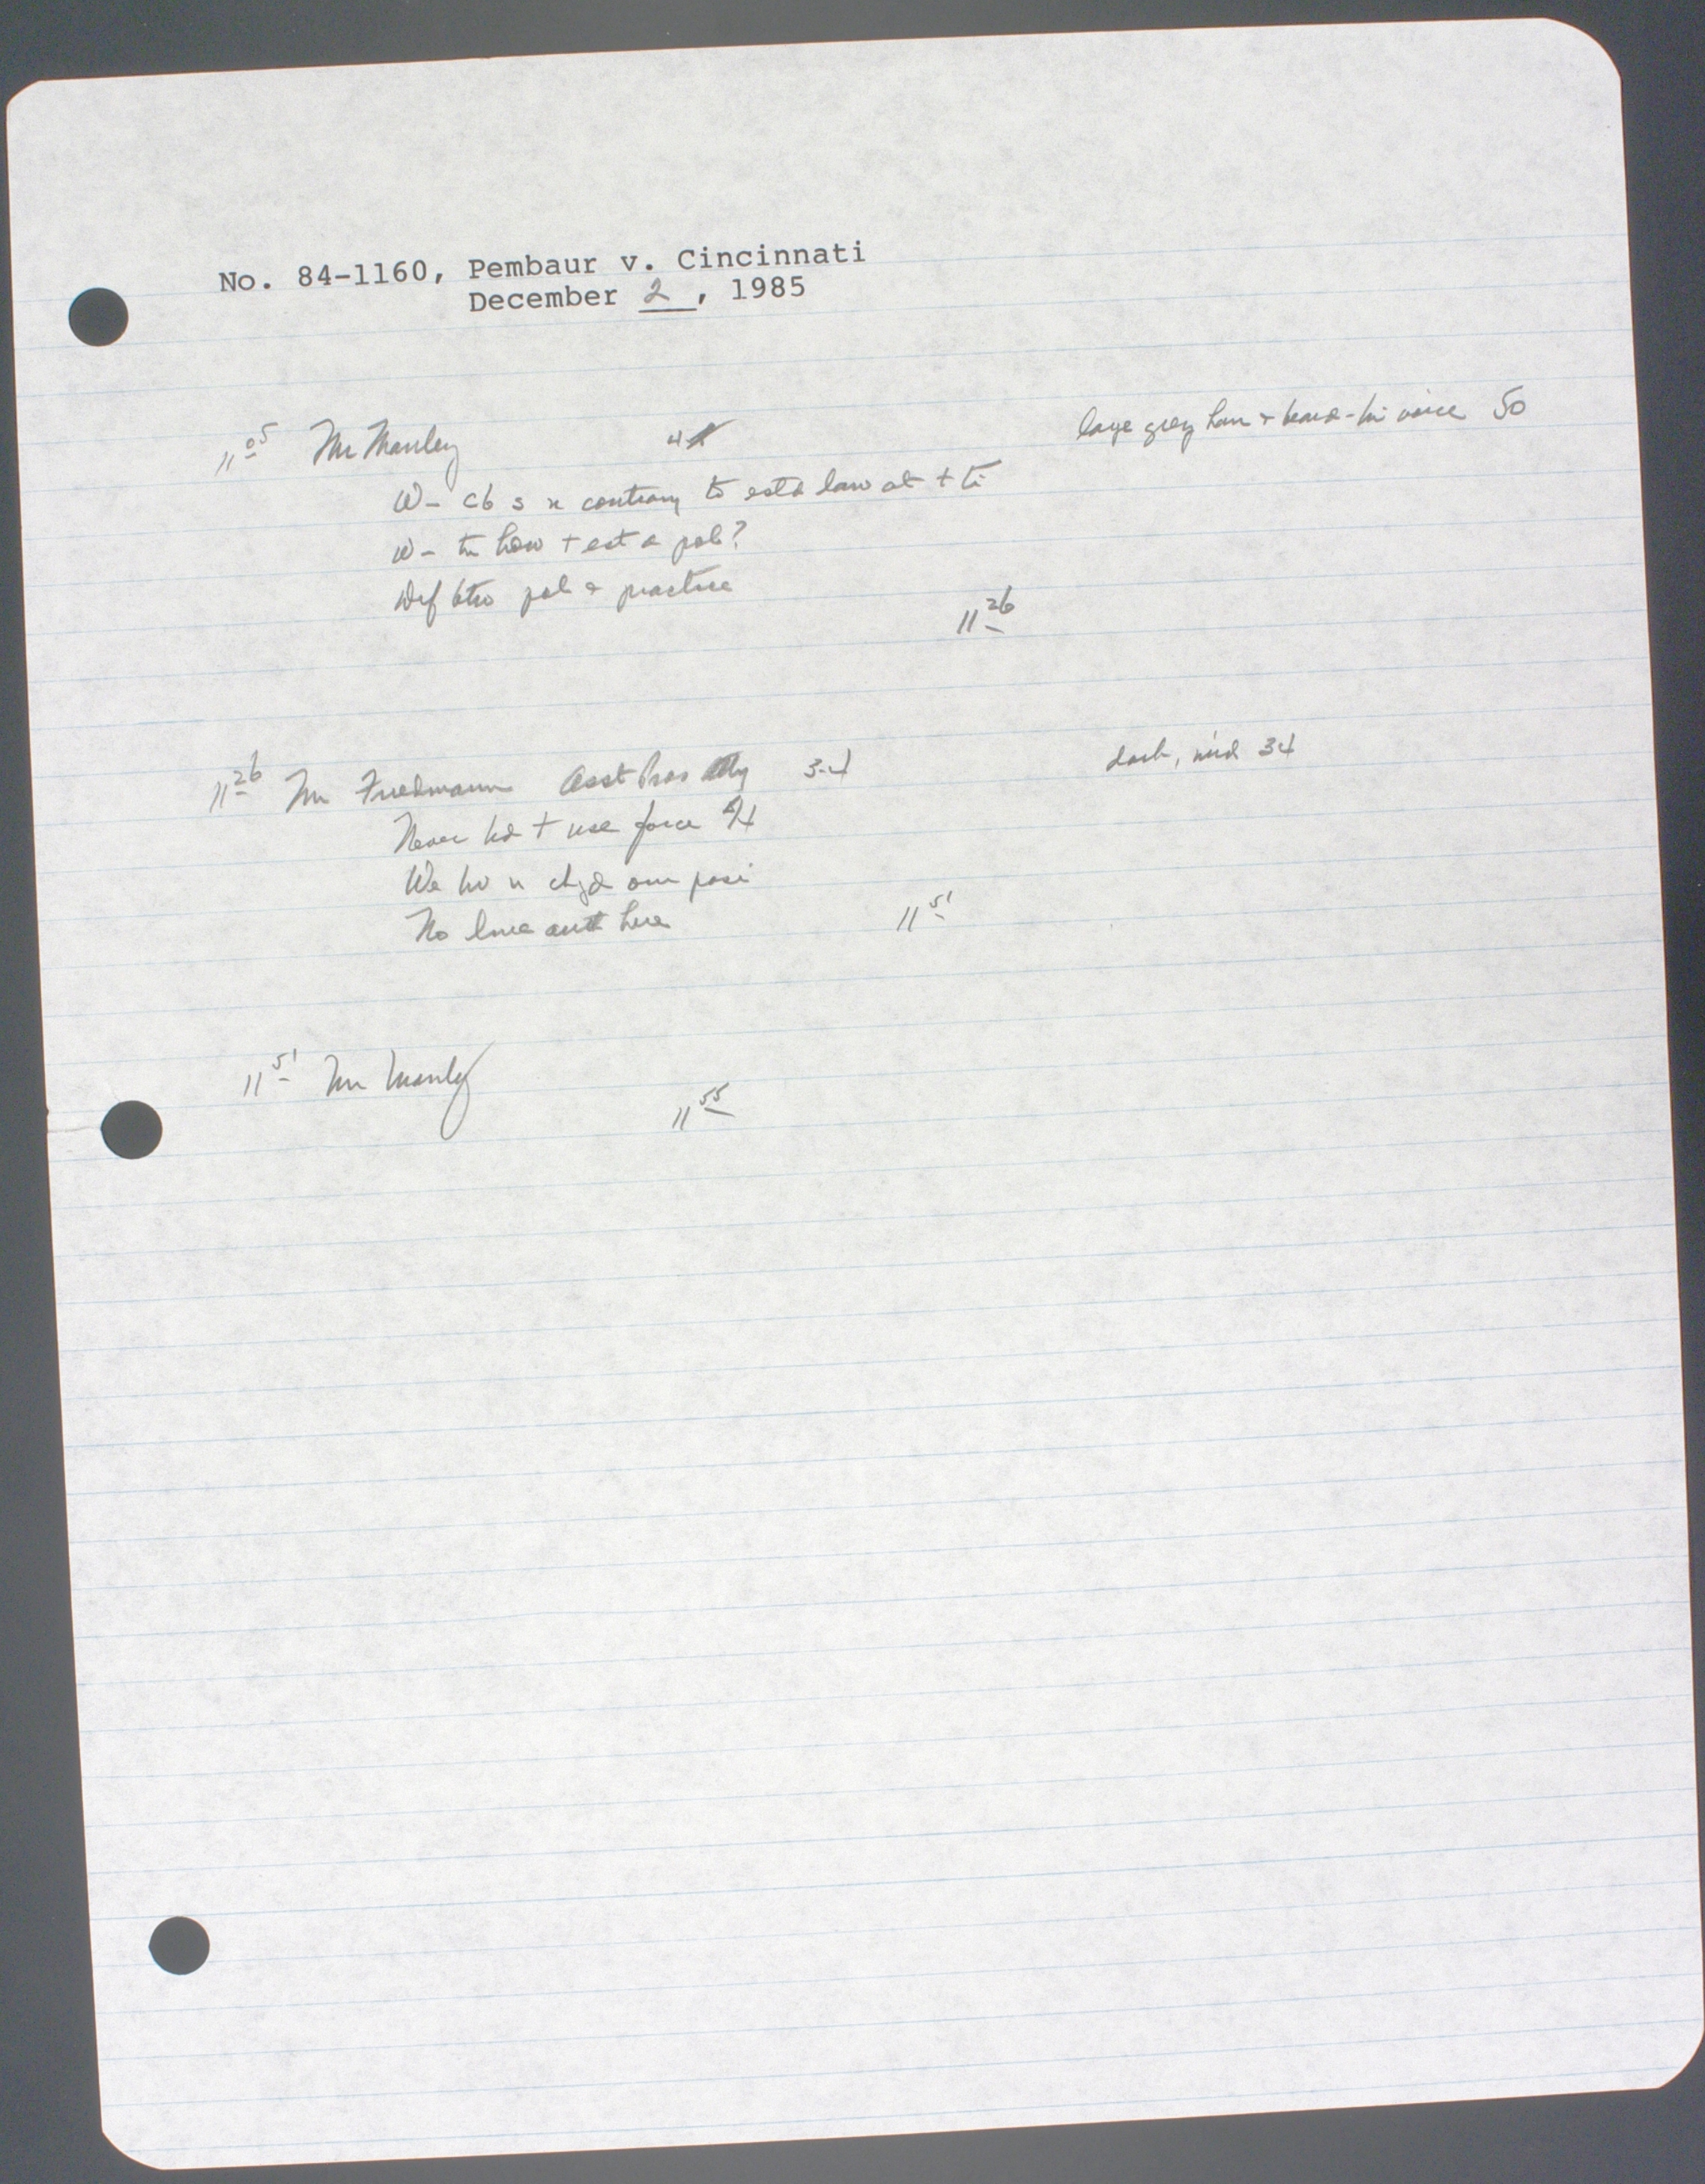 No. 84-1160, Pembaur v. Cincinnati
December 2, 1985
11 05 Mr Manley 4 large grey hair & beard - hi voice 50
W - cb s n contrary to estd law at t ti
W - tn how t est a pol?
Dif btw pol & practice
11 26
11 26 Mr Friedmann Asst Pros Atty 3-4 dark, mid 34
Never hd t use force
We hv n chgd our posi
No here
11 51
11 51 Mr Manley
11 55